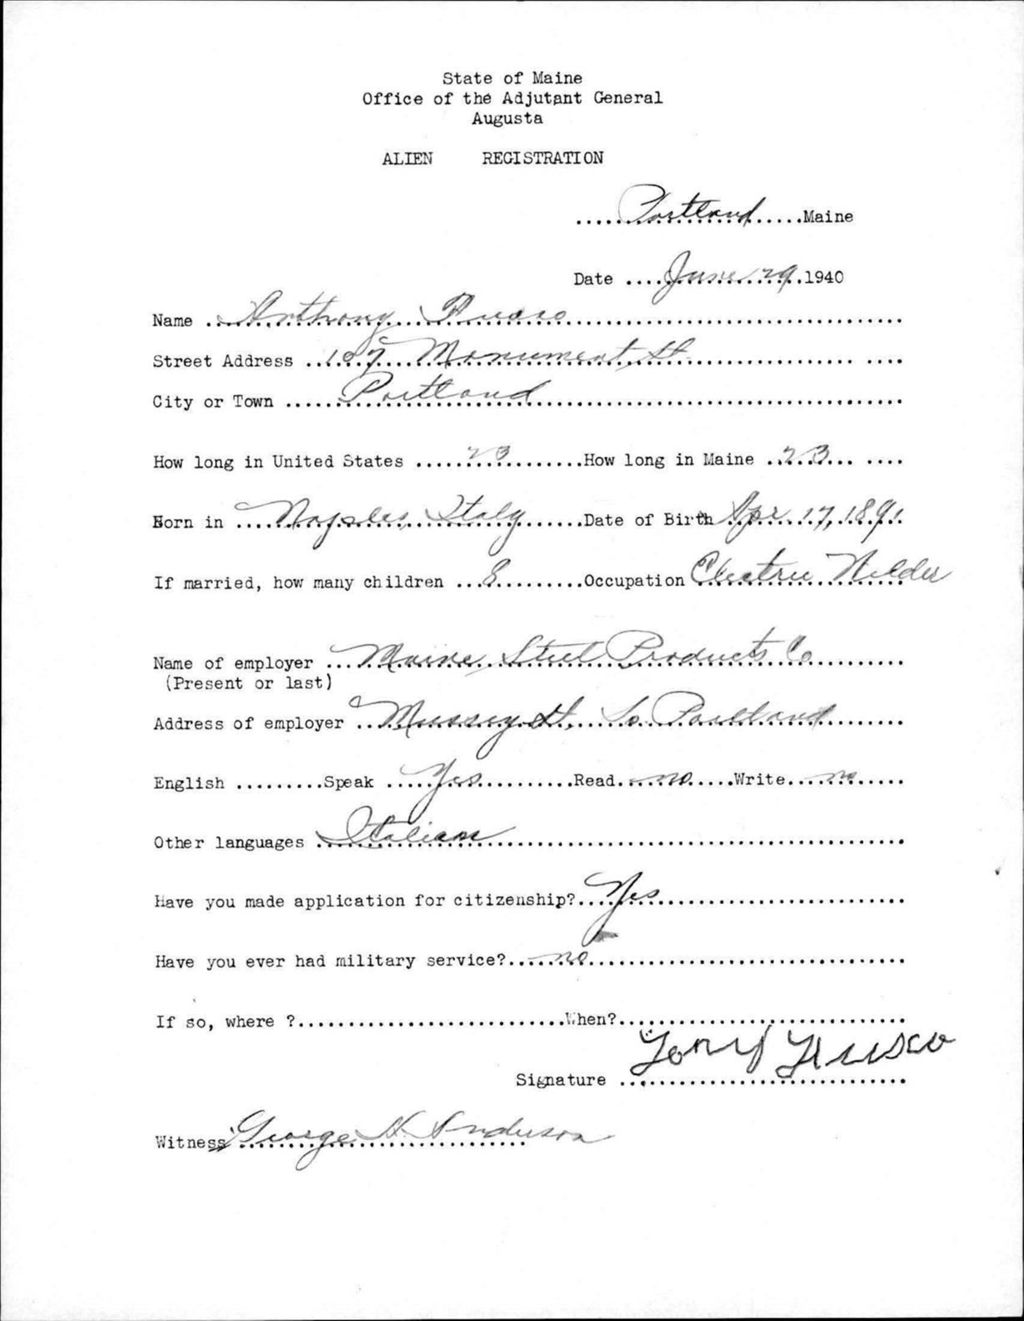 State of Maine
Office of the Adjutant General
Augusta
ALIEN REGISTRATION
....Portland.....Maine
Date ....June 29..1940
Name ..Anthony
Street Address ..107 Monument St.
City or Town .....Portland
How long in United States .....23.........How long in Maine ..23... ....
Born in ....Naples, Italy......Date of Birth Apr. 17, 1891
If married, how many children ...8.........Occupation Electric Welder
Name of employer ...Maine Steel Products Co
(Present or last)
Address of employer ..Mussey St. So. Portland
English .........Speak ....Yes..........Read...no.....Write....no.....
Other languages ..Italian
Have you made application for citizenship?....Yes
Have you ever had military service?.....no
If so, where ?...........................When?.............................
Signature Tony
Witness George H. Anderson